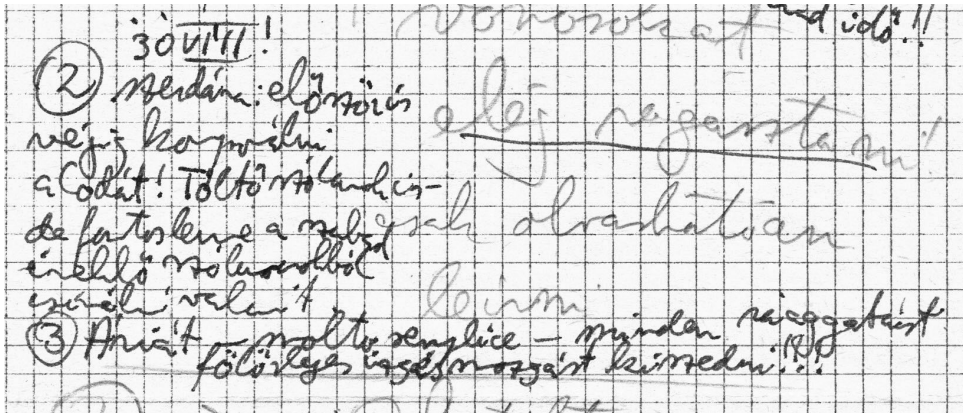 jó VIII!
② szerdára: először is
végig komponálni
a Codát! Töltő szólamok is –
de fontos lenne a szabad
éneklő szólamokból
csinálni valamit.
③ Áriát – molto semplice – minden ráaggatást
fölösleges izgés mozgást kiszedni!!!
vörösöket
elég ragasztani!
csak olvashatóan
leírni
idő!!